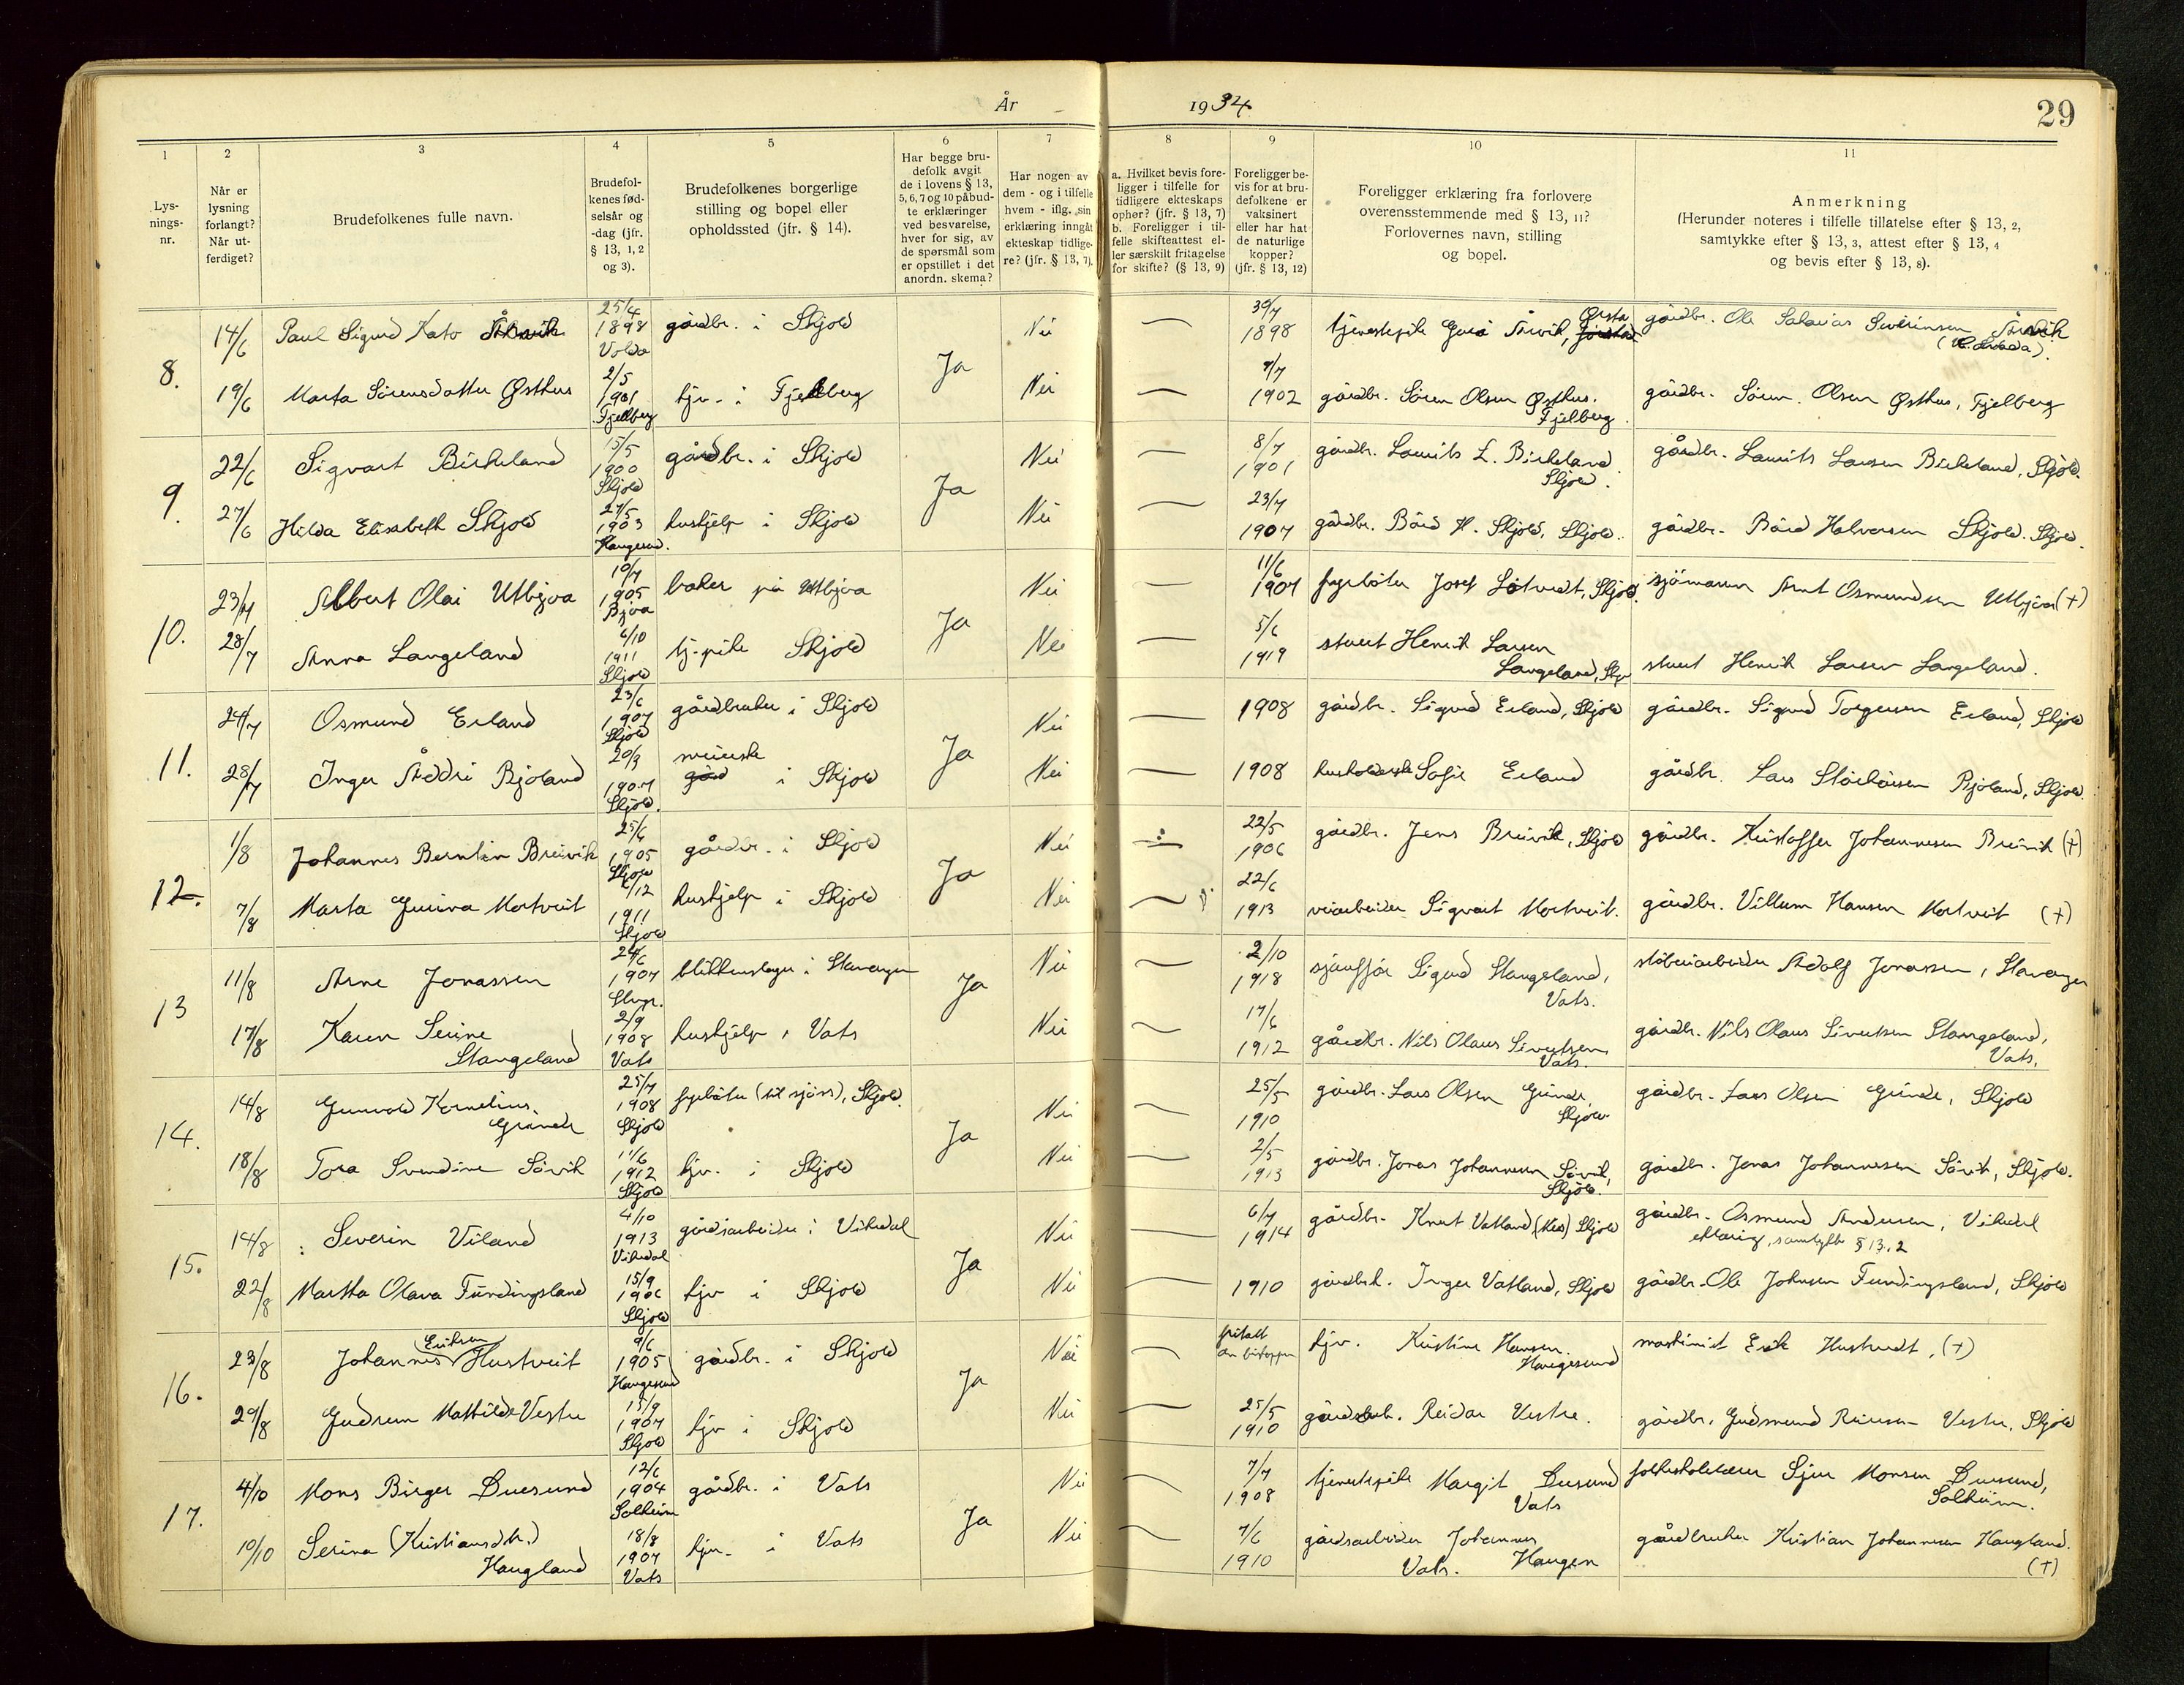 År 1934
29
1 2 3 4 5 6 7 8 9 10 11
Lysningsnr.
Når er lysning forlangt? Når utferdiget?
Brudefolkenes fulle navn.
Brudefolkenes fødselsår og -dag (jfr. § 13, 1, 2 og 3).
Brudefolkenes borgerlige stilling og bopel eller opholdssted (jfr. § 14).
Har begge brudefolk avgit de i lovens § 13, 5, 6, 7 og 10 påbudte erklæringer ved besvarelse, hver for sig, av de spørsmål som er opstillet i det anordn. skema?
Har nogen av dem - og i tilfelle hvem - iflg. sin erklæring inngåt ekteskap tidligere? (jfr. § 13, 7).
a. Hvilket bevis foreligger i tilfelle for tidligere ekteskaps ophør? (jfr. § 13, 7) b. Foreligger i tilfelle skifteattest eller særskilt fritagelse for skifte? (§ 13, 9)
Foreligger bevis for at brudefolkene er vaksinert eller har hat de naturlige kopper? (jfr. § 13, 12)
Foreligger erklæring fra forlovere overensstemmende med § 13, 11? Forlovernes navn, stilling og bopel.
Anmerkning (Herunder noteres i tilfelle tillatelse efter § 13, 2, samtykke efter § 13, 3, attest efter § 13, 4 og bevis efter § 13, 8).
8. 14/6 Paul Sigurd Kato 25/4 1898 Volda gårdbr. i Skjold Ja Nei — 30/7 1898 tjenestepike Årvik, Ørsta gårdbr. Ole Sakarias Severinsen Årvik
19/6 Marta Sörensdatter Østhus 2/5 1901 Fjellberg tjv. i Fjelberg Nei — 1902 gårdbr. Sören Olsen Østhus. Fjelberg gårdbr. Sören Olsen Østhus, Fjelberg
9. 22/6 Sigvart Birkeland 15/5 1900 Skjold gårdbr. i Skjold Ja Nei — 8/7 1901 gårdbr. Laurits L. Birkeland Skjold. gårdbr. Laurits Larsen Birkeland, Skjold.
27/6 Hilda Elisabeth Skjold 27/5 1903 Haugesund. hushjelp i Skjold Nei — 23/7 1907 gårdbr. Bård H. Skjold, Skjold. gårdbr. Bård Halvorsen Skjold. Skjold.
10. 23/7 Albert Olai Utbjoa 10/7 1905 Bjoa baker på Utbjoa Ja Nei — 11/6 1907 fyrböter Josef Lötvedt, Skjold. sjömann Arnt Osmundsen Utbjoa (+)
28/7 Anna Langeland 6/10 1911 Skjold tj-pike Skjold Nei — 5/6 1919 stuert Henrik Larsen Langeland, stuert Henrik Larsen Langeland.
11. 24/7 Osmund Erland 23/6 1907 Skjold gårdbruker i Skjold Ja Nei — 1908 gårdbr. Sigurd Erland, Skjold gårdbr. Sigurd Torgersen Erland, Skjold
28/7 Inger Bjoland 20/9 1907 Skjold. meierske i Skjold Nei — 1908 husholderske Sofie Erland gårdbr. Lars Bjoland, Skjold.
12. 1/8 Johannes Berntin Breivik 25/6 1905 Skjold gårdbr. i Skjold Ja Nei 22/5 1906 gårdbr. Jens Breivik, Skjold gårdbr. Kristoffer Johannesen Breivik (+)
7/8 Marta Gurina Mortveit 1911 Skjold hushjelp i Skjold Nei — 22/6 1913 veiarbeider Sigvart Mortveit. gårdbr. Villum Hansen Mortveit (+)
13 11/8 Arne Jonassen 24/6 1907 blikkenslager i Stavanger Ja Nei — 2/10 1918 sjåufför Sigurd Stangeland, Vats. stöberiarbeider Adolf Jonassen, Stavanger
17/8 Karen Serine Stangeland 2/9 1908 Vats hushjelp i Vats Nei — 17/6 1912 gårdbr. Nils Olaus Sivertsen Vats. gårdbr. Nils Olaus Sivertsen Stangeland, Vats.
14. 14/8 Gunvald Kornelius Grinde 25/7 1908 Skjold fyrböter (til sjöss), Skjold. Ja Nei — 25/5 1910 gårdbr. Lars Olsen Grinde, Skjold gårdbr. Lars Olsen Grinde, Skjold
18/8 Tora Svendine Sövik 1912 Skjold tjv. i Skjold Nei — 2/5 1913 gårdbr. Jonas Johannesen Sövik, Skjold. gårdbr. Jonas Johannesen Sövik, Skjold.
15. 14/8 Severin Viland 4/10 1913 Vikedal gårdsarbeider i Vikedal Ja Nei — 6/7 1914 gårdbr. Knut Vatland Skjold gårdbr. Osmund Andersen, Vikedal
erklæring, samtykke § 13.2
22/8 Martha Olava Fundingsland 15/9 1906 Skjold tjv i Skjold Nei — 1910 gårdbrk. Inger Vatland, Skjold gårdbr. Ole Johnsen Fundingsland, Skjold
16. 23/8 Johannes Eriksen Hustveit 9/6 1905 Haugesund gårdbr. i Skjold Ja Nei — fritatt tjv. Kristine Hansen. Haugesund maskinist Erik Hustvedt, (+)
29/8 Gudrun Mathilde Vestre 15/9 1907 Skjold tjv i Skjold Nei — 25/5 1910 gårdsarb. Reidar Vestre. gårdbr. Gudmund Vestre, Skjold
17. 4/10 Mons Birger Duesund 12/6 1904 Solheim gårdbr. i Vats Ja Nei — 7/7 1908 tjenestepike Margit Duesund Vats folkeskolelærer Sjur Monsen Duesund, Solheim.
10/10 Serina (Kristiansdtr.) Haugland 18/8 1907 Vats tjv. i Vats Nei — 7/6 1910 gårdsarbeider Johannes Haugen Vats. gårdbruker Kristian Johannesen Haugland. (+)